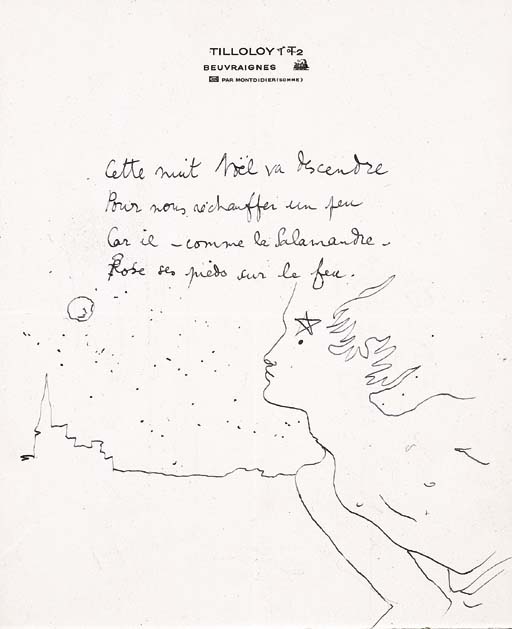 TILLOLOY 2
BEUVRAIGNES
PAR MONTDIDIER (SOMME)
Cette nuit Noël va descendre
Pour nous réchauffer un peu
Car il – comme la Salamandre –
Pose ses pieds sur le feu.